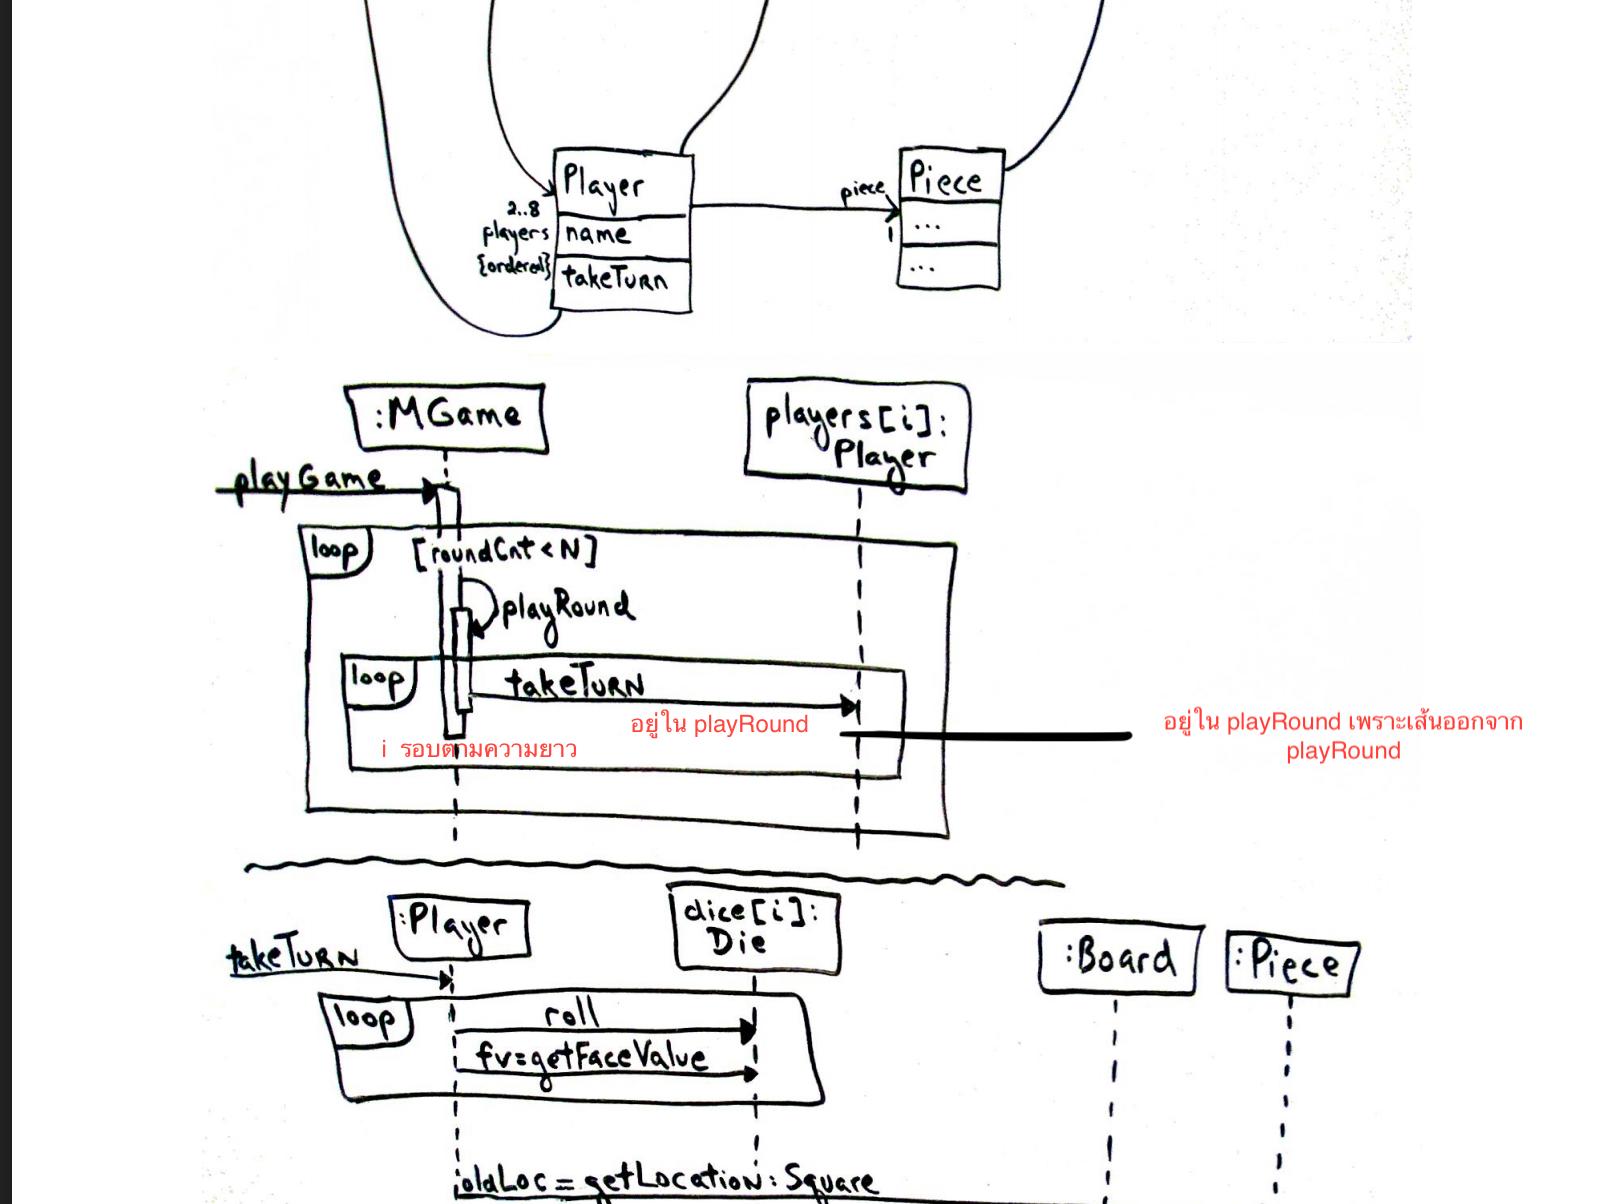 Player
Piece
piece
2..8
players
name
1
...
{ordered}
takeTurn
...
:MGame
players[i]:
Player
playGame
loop
[roundCnt < N]
playRound
loop
takeTurn
อยู่ใน playRound
อยู่ใน playRound เพราะเส้นออกจาก
playRound
i รอบตามความยาว
:Player
dice[i]:
Die
takeTurn
:Board
:Piece
loop
roll
fv=getFaceValue
oldLoc = getLocation:Square